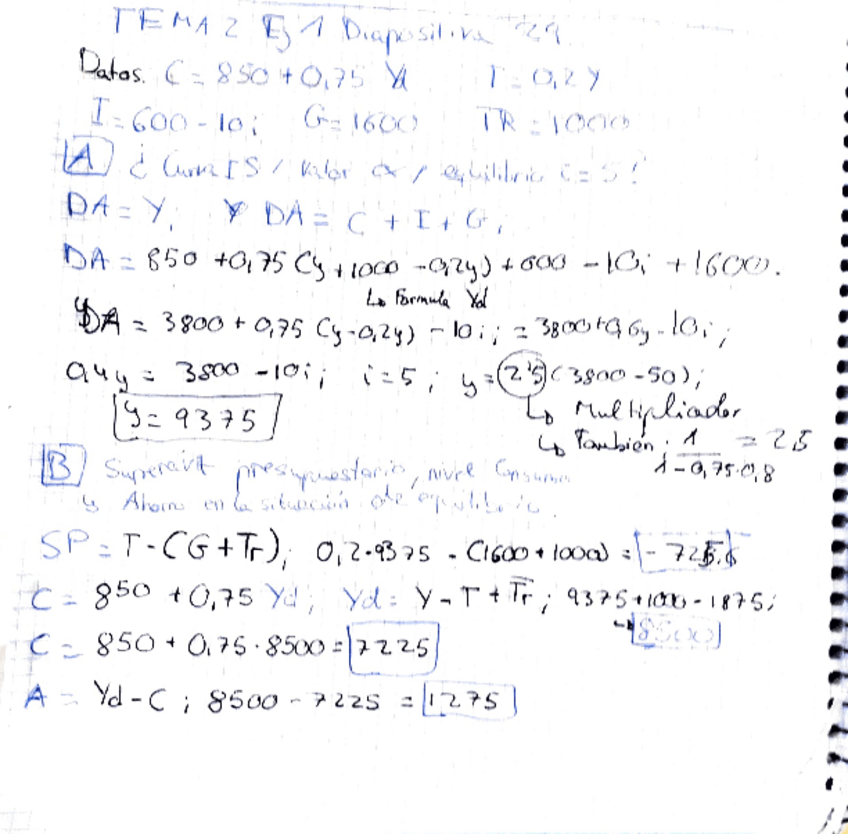 TEMA 2 Ej 1 Diapositiva 29
Datos. C = 850 + 0,75 Yd T = 0,2y
I = 600 - 10i G = 1600 TR = 1000
A ¿Curva IS / Valor α / equilibrio i = 5?
DA = Y; DA = C + I + G;
DA = 850 + 0,75 (y + 1000 - 0,2y) + 600 - 10i + 1600.
↳ Formula Yd
DA = 3800 + 0,75 (y - 0,2y) - 10i; = 3800 + 0,6y - 10i;
0,4y = 3800 - 10i; i = 5; y = 2'5 (3800 - 50);
↳ Multipliador
y = 9375
↳ También: 1/1 - 0,75·0,8 = 2,5
B Superavit presupuestario, nivel Consumo
y Ahorro en la situación de equilibrio.
SP = T - (G + Tr); 0,2·9375 - (1600 + 1000) = - 725
C = 850 + 0,75 Yd; Yd = Y - T + Tr; 9375 + 1000 - 1875;
↳ 8500
C = 850 + 0,75·8500 = 7225
A = Yd - C; 8500 - 7225 = 1275